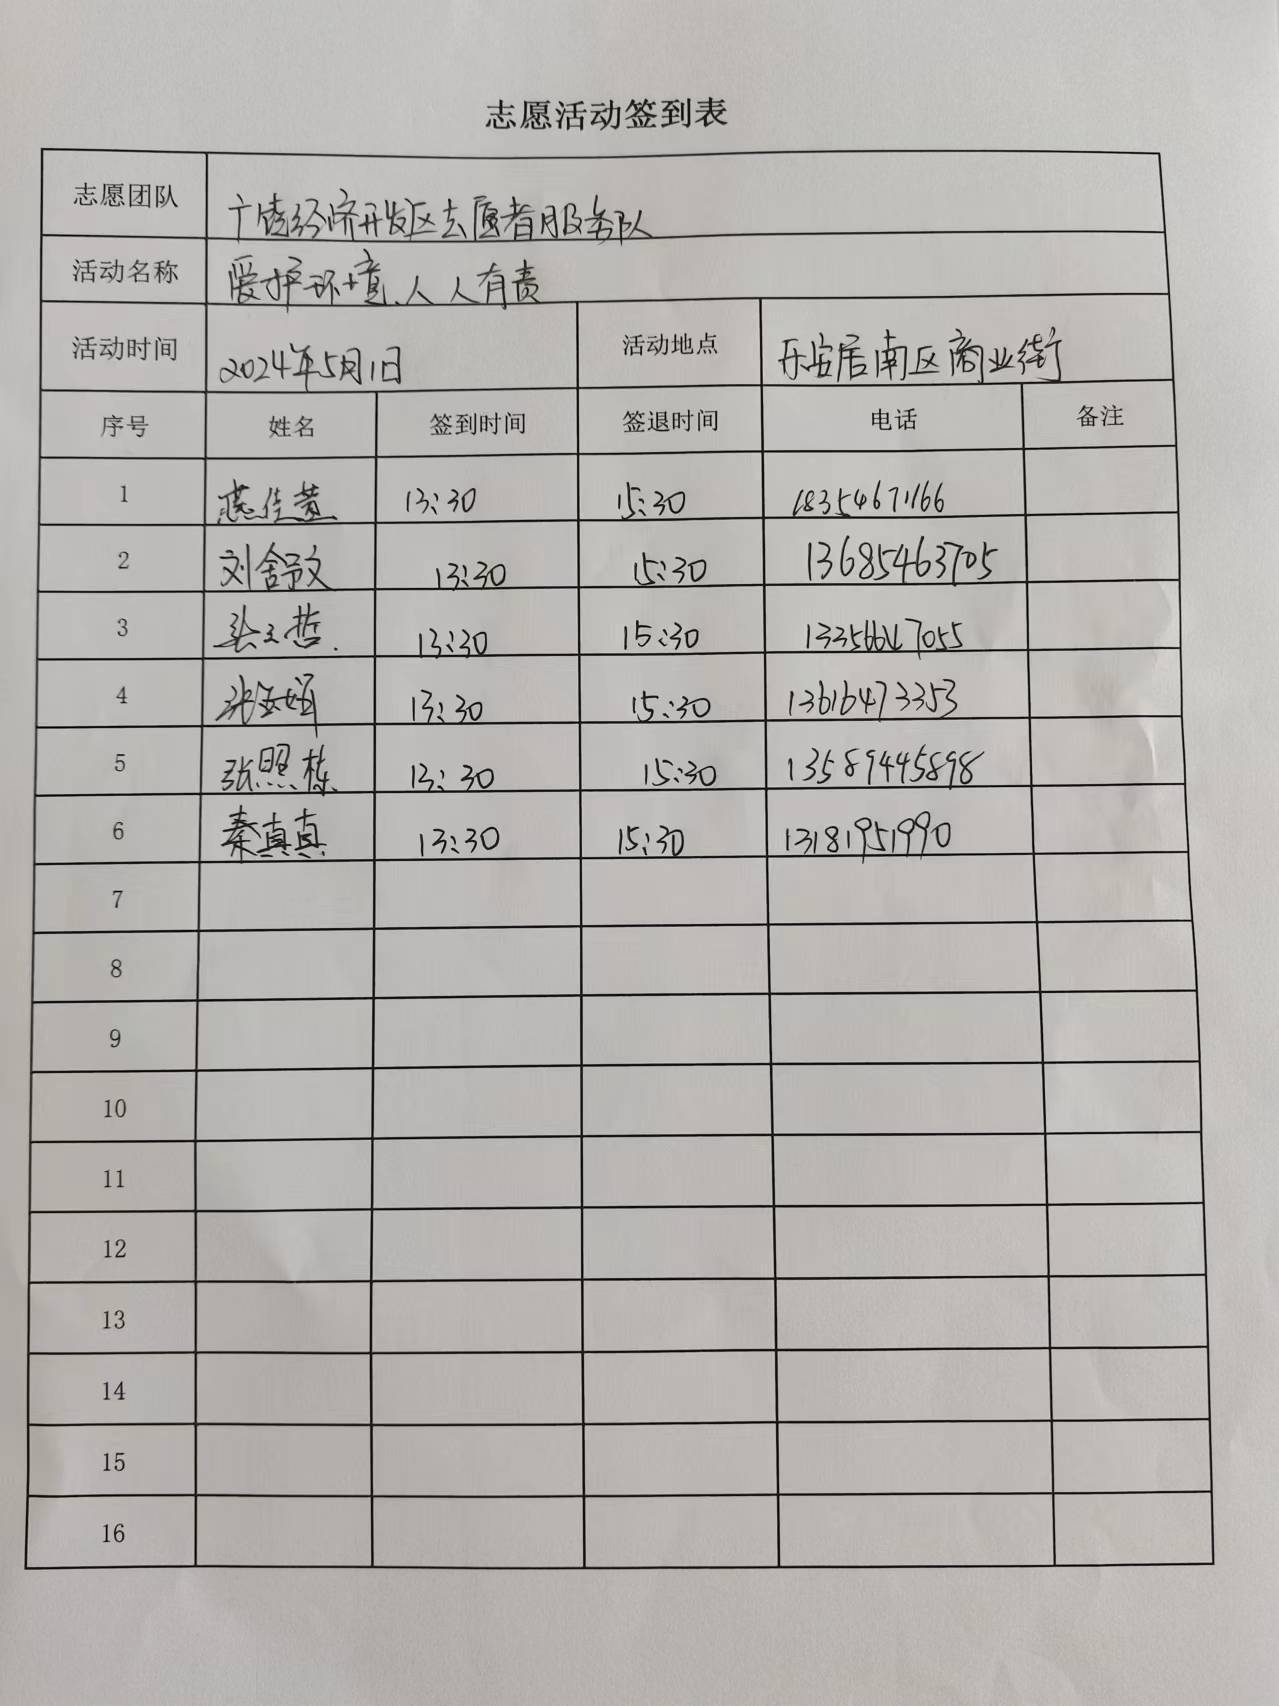 志愿活动签到表
志愿团队 广饶经济开发区志愿者服务队
活动名称 爱护环境、人人有责
活动时间 2024年5月1日 活动地点 乐安居南区商业街
序号 姓名 签到时间 签退时间 电话 备注
1 13:30 15:30 18354671166
2 刘舒文 13:30 15:30 13685463705
3 13:30 15:30 13356647055
4 13:30 15:30 13616473353
5 张照栋 13:30 15:30 13589445898
6 秦真真 13:30 15:30 13181951990
7
8
9
10
11
12
13
14
15
16